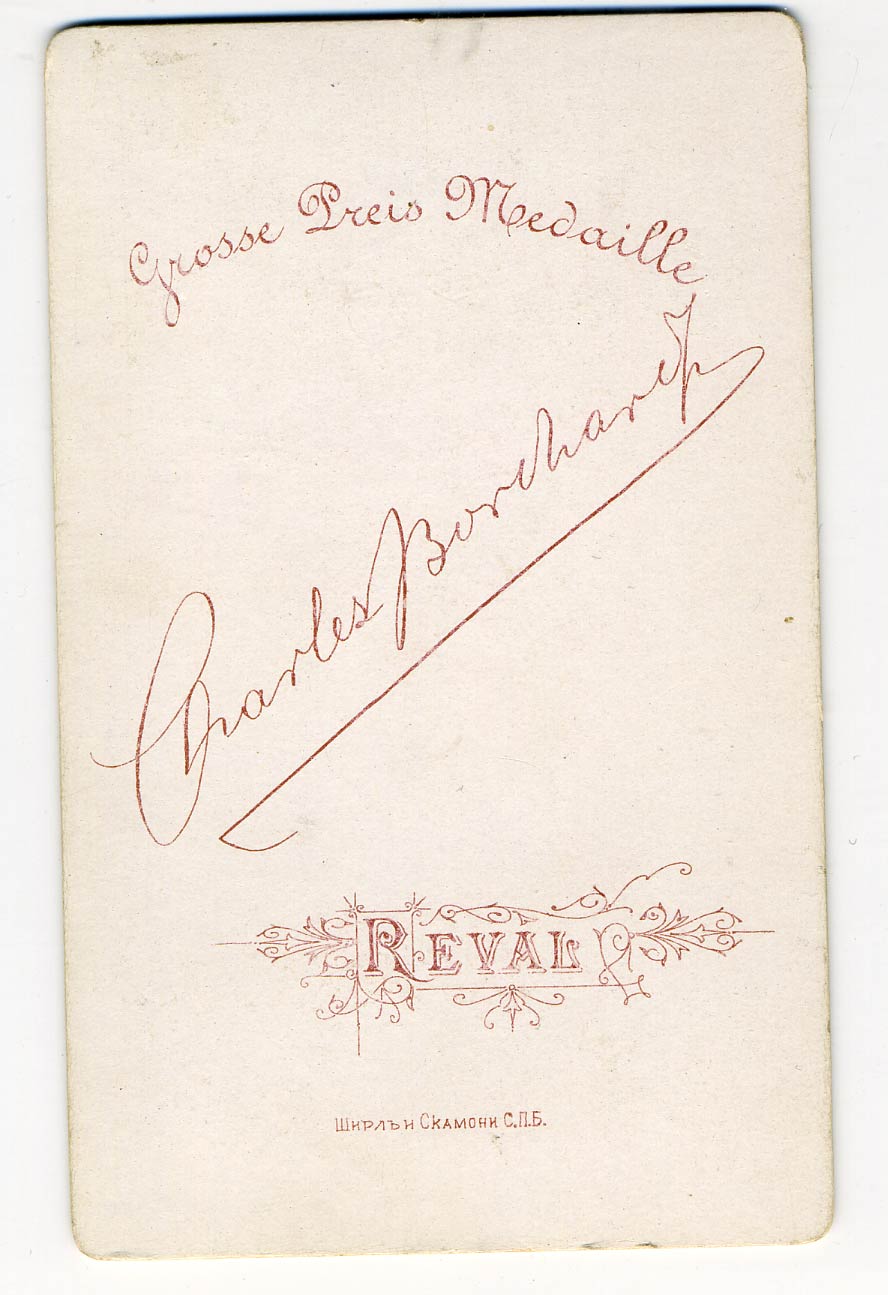 Grosse Preis Medaille
Charles Borchardt
REVAL
Ширль и Скамони С.П.Б.